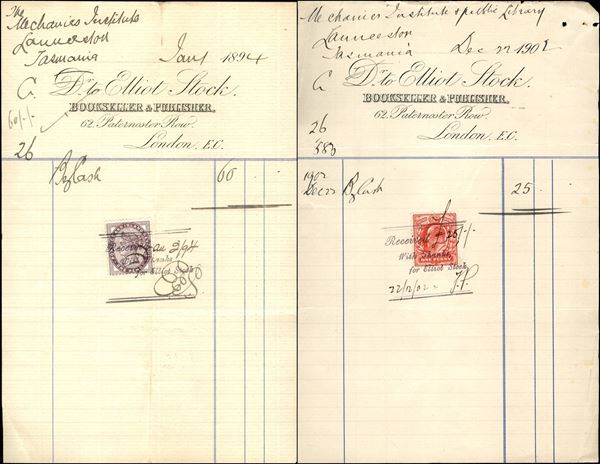 The
Mechanics Institute
Launceston
Tasmania Jan 1 1894
Dr. to Elliot Stock,
BOOKSELLER & PUBLISHER.
60/-/-
62, Paternoster Row,
26
London, E.C.
By Cash 60
Received Jan 2/94
With Thanks
for Elliot Stock
Mechanics' Institute & public Library
Launceston
Tasmania Dec 22 1902
Dr. to Elliot Stock,
BOOKSELLER & PUBLISHER.
62, Paternoster Row,
26
London, E.C.
583
1902
Dec 22 By Cash 25
Received 25/-/-
With Thanks
ONE PENNY
for Elliot Stock
22/12/02